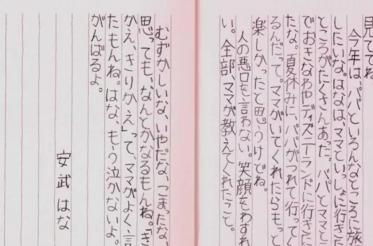 見ててね
今年は、パパといろんなところに旅
したいな。はなは、ママといっしょに行きた
ところがたくさんあった。パパとママと
でおきなわやディズニーランドに行きた
たな。夏休みに、パパがつれて行って
るんだって。ママがいてくれたらもっと
楽しかったと思うけどね。
人の悪口を言わない。笑顔をわすれ
い。全部、ママが教えてくれたこと。
むずかしいな、いやだな、こまったな、
思っても、なんとかなるもんね。「き
かえ、きりかえ」って、ママがよく言
たもんね。はな、もう泣かないよ。
がんばるよ。
安武はな